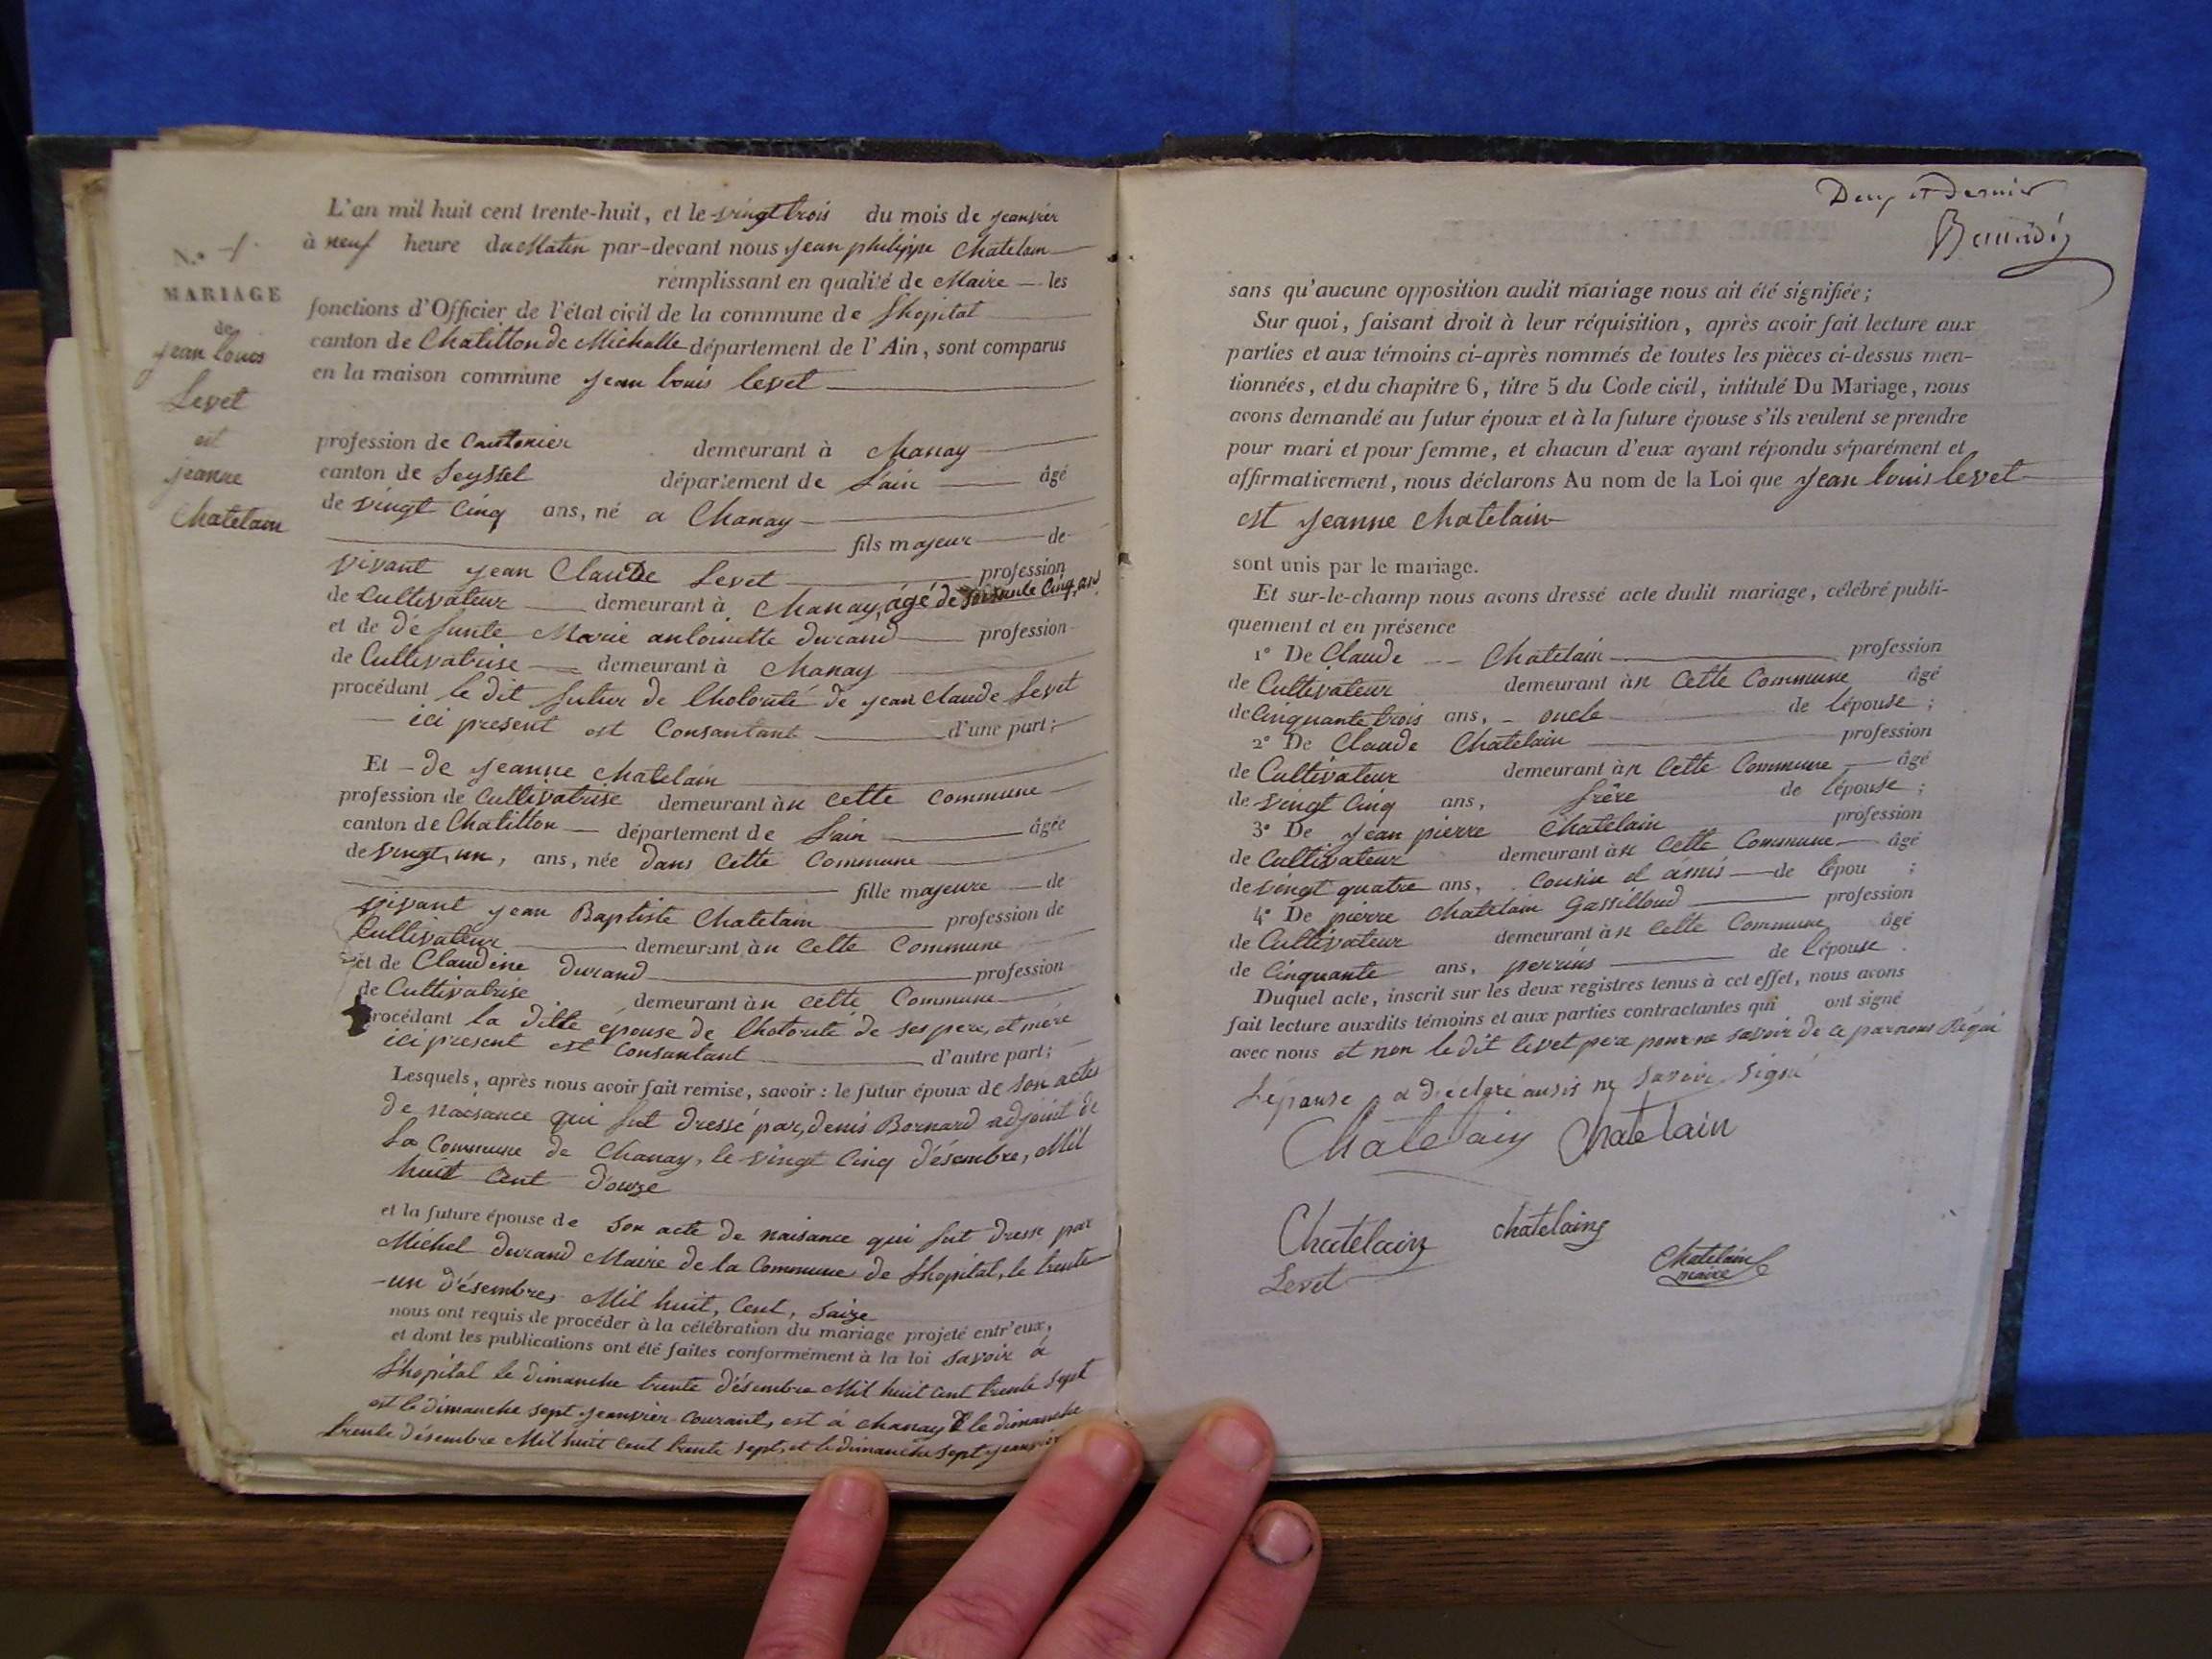 L'an mil huit cent trente-huit, et le vingt trois du mois de jeanvier
N.° 1.
à neuf heure du Matin par-devant nous jean philippe Chatelain
MARIAGE
remplissant en qualité de Maire les
de
fonctions d'Officier de l'état civil de la commune de Lhopital
jean louis
canton de Chatillon de Michalle département de l'Ain, sont comparus
Levet
en la maison commune jean louis levet
et
jeanne
Chatelain
profession de Cantonier demeurant à Chanay
canton de Seyssel département de Lain âgé
de vingt Cinq ans, né a Chanay
fils majeur de
vivant jean Claude Levet profession
de Cultivateur demeurant à Chanay, âgé de soixante Cinq ans
et de défunte Marie antoinette durand profession
de Cultivatrise demeurant à Chanay
procédant le dit futur de Lhotorité de jean Claude Levet
ici present est Consantant d'une part;
Et de jeanne Chatelain
profession de Cultivatrise demeurant àn cette commune
canton de Chatillon département de Lain âgée
de vingt, un, ans, née dans cette Commune
fille majeure de
vivant jean Baptiste Chatelain profession de
Cultivateur demeurant àn cette Commune
et de Claudine durand profession
de Cultivatrise demeurant àn cette Commune
procédant la ditte épouse de Lhotorité de ses pere, et mére
ici present est Consantant d'autre part;
Lesquels, après nous avoir fait remise, savoir : le futur époux de son actes
de naisance qui fut dressé par, denis Bornard adjoint de
La Commune de Chanay, le vingt Cinq désembre, Mil
huit Cent douze
et la future épouse de son acte de naisance qui fut dresse par
Michel durand Maire de la Commune de Lhopital, le trente
-un désembres Mil huit, Cent, Saize
nous ont requis de procéder à la célébration du mariage projeté entr'eux,
et dont les publications ont été faites conformément à la loi savoir à
Lhopital le dimanche trente désembre Mil huit cent trente sept
est le dimanche sept jeanvier courant, est à chanay le dimanche
trente désembre Mil huit cent trente sept, et le dimanche sept jeanvier
Deux et dernier
sans qu'aucune opposition audit mariage nous ait été signifiée;
Sur quoi, faisant droit à leur réquisition, après avoir fait lecture aux
parties et aux témoins ci-après nommés de toutes les pièces ci-dessus men-
tionnées, et du chapitre 6, titre 5 du Code civil, intitulé Du Mariage, nous
avons demandé au futur époux et à la future épouse s'ils veulent se prendre
pour mari et pour femme, et chacun d'eux ayant répondu séparément et
affirmativement, nous déclarons Au nom de la Loi que jean louis levet
est jeanne Chatelain
sont unis par le mariage.
Et sur-le-champ nous avons dressé acte dudit mariage, célébré publi-
quement et en présence
1° De Claude Chatelain profession
de Cultivateur demeurant àn Cette Commune âgé
de Cinquante trois ans, oncle de lépouse;
2° De Claude Chatelain profession
de Cultivateur demeurant àn Cette Commune âgé
de vingt Cinq ans, frère de lépouse;
3° De jean pierre Chatelain profession
de Cultivateur demeurant àn Cette Commune âgé
de vingt quatre ans, cousin et amis de lépou ;
4° De pierre Chatelain Gassilloud profession
de Cultivateur demeurant àn Cette Commune âgé
de Cinquante ans, perrins de lépouse.
Duquel acte, inscrit sur les deux registres tenus à cet effet, nous avons
fait lecture auxdits témoins et aux parties contractantes qui ont signé
avec nous et non le dit levet pere pour ne savoir de ce par nous Réqui
Lépouse a déclaré ausis ne savoir signé
Chatelain Chatelain
Chatelain chatelain
Levet
Chatelain
maire